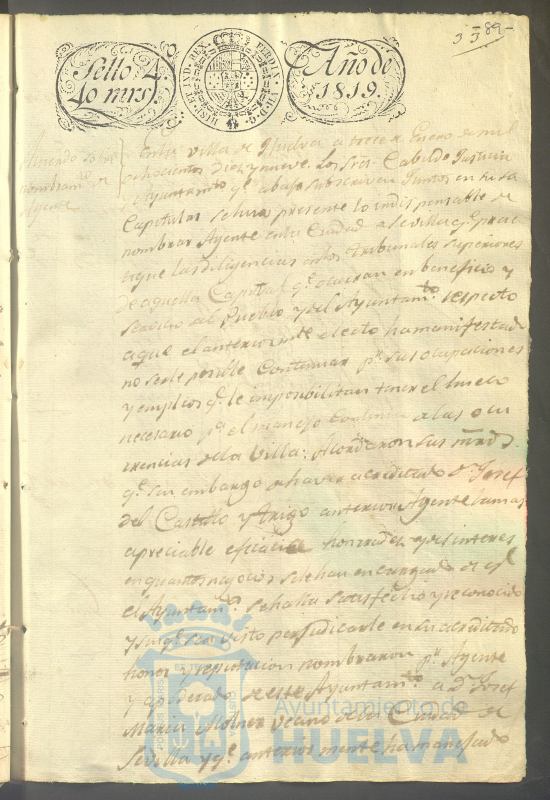 89
Sello 4
40 mrs
HISP. ET IND. REX. FERDIN. VII. D. G.
Año de
1819.
Acuerdo sobre
nombram.to de
Agente
En la Villa de Huelva a trece de Enero de mil
ochocientos Diez y nueve. Los Sres. Cabildo Justicia
y Ayuntam.to q.e abajo subscriven Juntos en su Sala
Capitular se hizo presente lo indispensable de
nombrar Agente en la Ciudad de Sevilla q.e prac
tique las diligencias en los tribunales superiores
de aquella Capital q.e ocurran en beneficio y
servicio del Pueblo y del Ayuntam.to respecto
a que el anteriorm.te electo ha manifestado
no serle posible Continuar p.r sus ocupaciones
y empleos q.e le imposibilitan tener el hueco
necesario p.a el manejo Continuo a las ocu
rrencias de la Villa: Acordaron sus mrds.
q.e sin embargo de haver acreditado D.n Josef
del Castillo y Trigo anterior Agente la mas
apreciable eficacia honradez y desinteres
en quantos negocios se le han encargado de q.e
el Ayuntam.to se halla satisfecho y reconocido
y sin q.e sea visto perjudicarle en su acreditado
honor y reputacion nombraron p.r Agente
y apoderado de este Ayuntam.to a D.n Josef
Maria Molner vecino de la Ciudad de
Sevilla y q.e anteriormente ha manejado
Ayuntamiento de
HUELVA